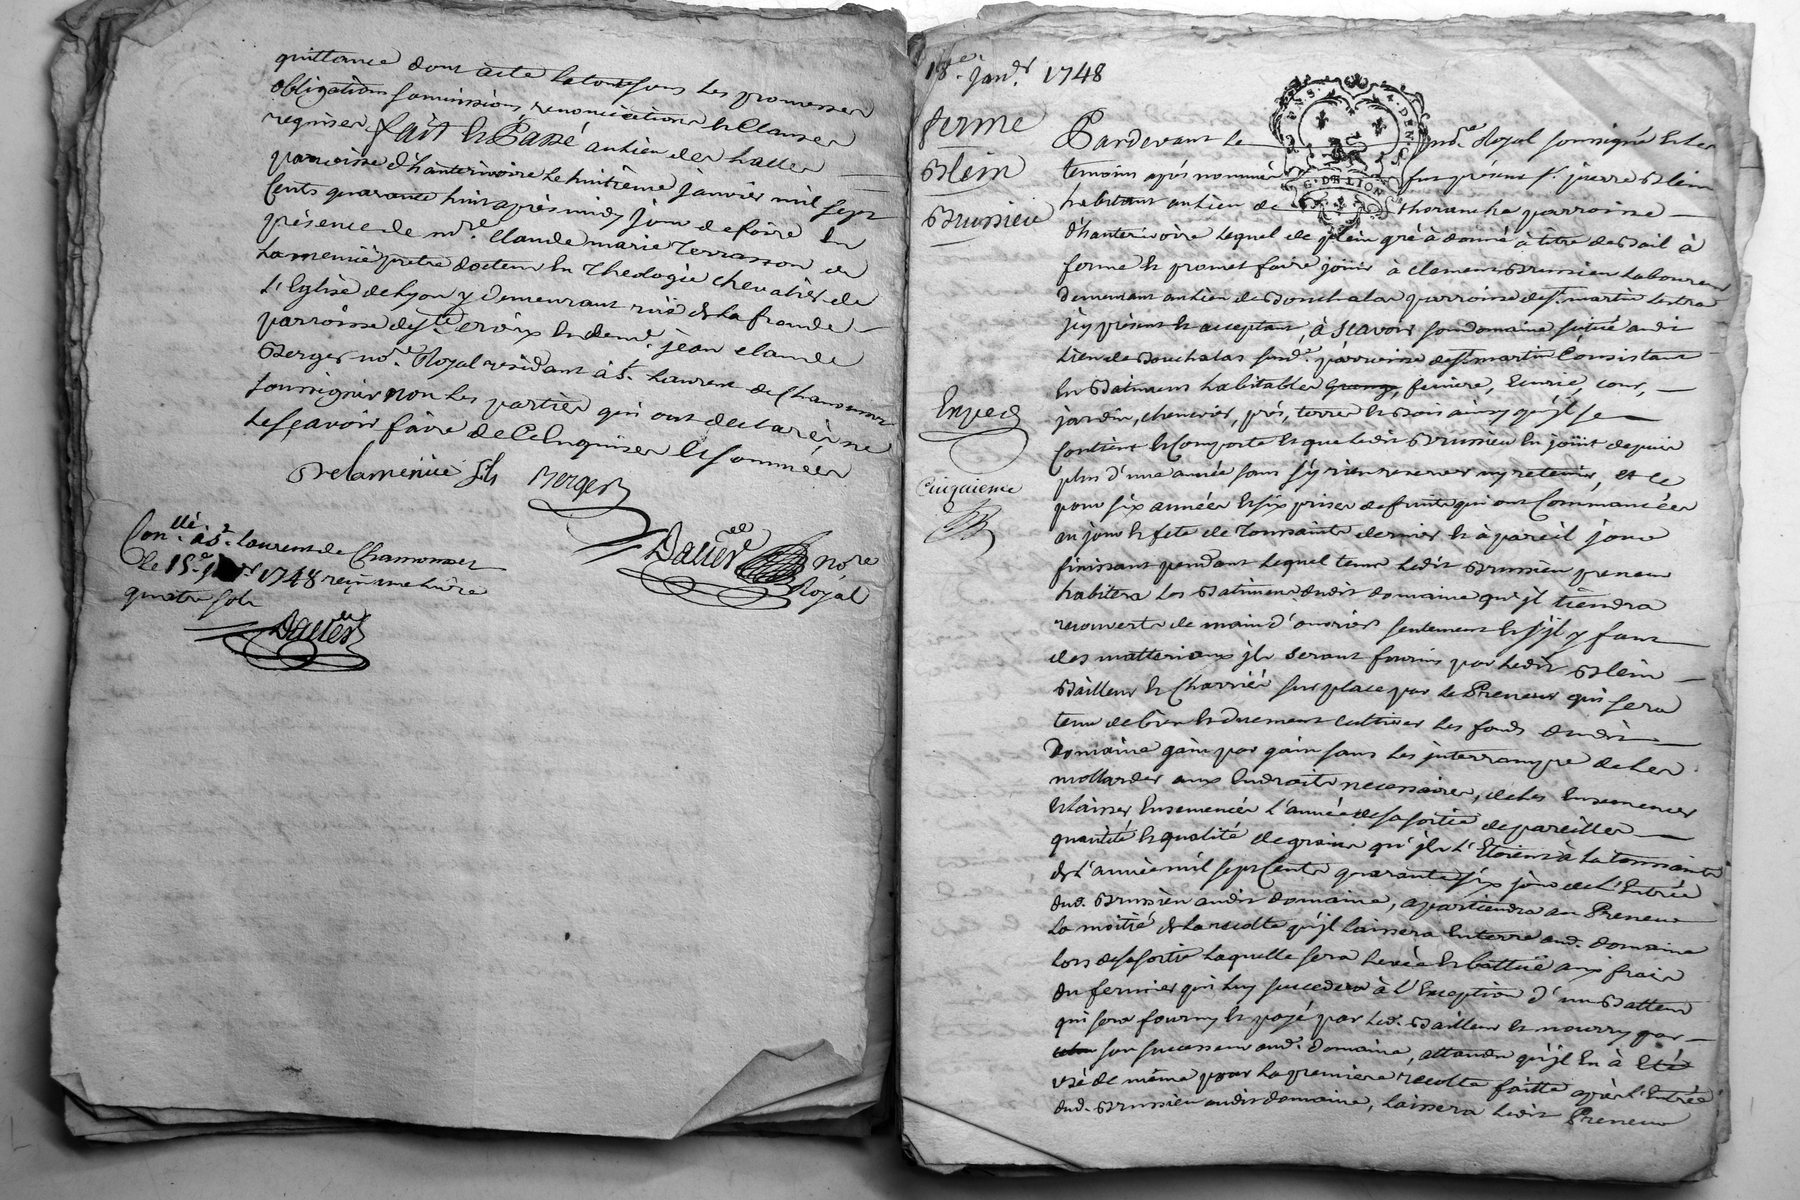 quittance dont acte le tout sous les promesses
obligations soumissions renonciations et clauses
requises fait et Passé au lieu des halles
parroisse d'hauterivoire le huitième janvier mil sept
cents quarante huit après midy jour de foire en
présence de mre. Claude marie Terrasson de
Lamenüe pretre docteur en Theologie chevalier de
l'Eglise de Lyon y demeurant ruë de la fronde
parroisse de ste. croix et de me. jean claude
Berger nore. Royal residant à st. Laurent de Chamousset
soussignés non les parties qui ont declaré ne
le sçavoir faire de ce Enquises et sommées
Delamenüe
Berger
Dauer nore
Royal
Conllé. à st. Laurent de Chamousset
le 15e. janr 1748 reçu une livre
quatre sols
Dauer
18e. janr. 1748
ferme
Blein
Brussieu
Exped
Cinquieme
Pardevant le nore. Royal soussigné et les
temoins après nommés fut présent sr. pierre Blein
habitant au lieu de thorancha parroisse
d'hauterivoire lequel de plein gré à donné à titre de Bail à
ferme et promet faire jöuir à clement Brussieu laboureur
demeurant au lieu de Bouchalas parroisse de st. martin lestra
jcy présent et acceptant, à scavoir son domaine scitué audit
lieu de Bouchalas susd. parroisse de st. martin Consistant
En Batimens habitables grange, feniere, Ecurie, cour,
jardin, chenevier, prés, terres et Bois ainsy qu'jl se
Contient et Comporte et que ledit Brussieu En jöuit depuis
plus d'une année sans s'y rien reserver ny retenir, et ce
pour six années et six prises de fruits qui ont Commancées
au jour et fete de Toussaints dernier et à pareil jour
finissant pendant lequel tems ledit Brussieu preneur
habitera les Batimens dudit domaine qu'jl tiendra
recouverts de main d'ouvrier seulement et s'jl y faut
des matteriaux jls seront fournis par ledit Blein
Bailleur et Charriés sur place par le Preneur qui sera
tenu de bien et duement cultiver les fonds dudit
Domaine gain par gain sans les jnterrompre de les
mollarder aux Endroits necessaires, de les Ensemencer
et laisser Ensemencés l'année de sa sortie de pareilles
quantité et qualité de grains qu'jls l'Etoient à la toussaints
de l'année mil sept Cents quarante six jour de l'Entrée
dud. Brussieu audit domaine, apartiendra au Preneur
la moitié de la recolte qu'jl laissera En terre aud. domaine
lors de sa sortie laquelle sera levée et battüe aux frais
du fermier qui luy succedera à l'Exception d'un Batteur
qui sera fourny et payé par led. Bailleur et nourry par
son successeur aud. domaine, attandu qu'jl En à Eté
usé de même pour la premiere recolte faitte après l'Entrée
dud. Brussieu audit domaine, laissera ledit Preneur
G. DE LION